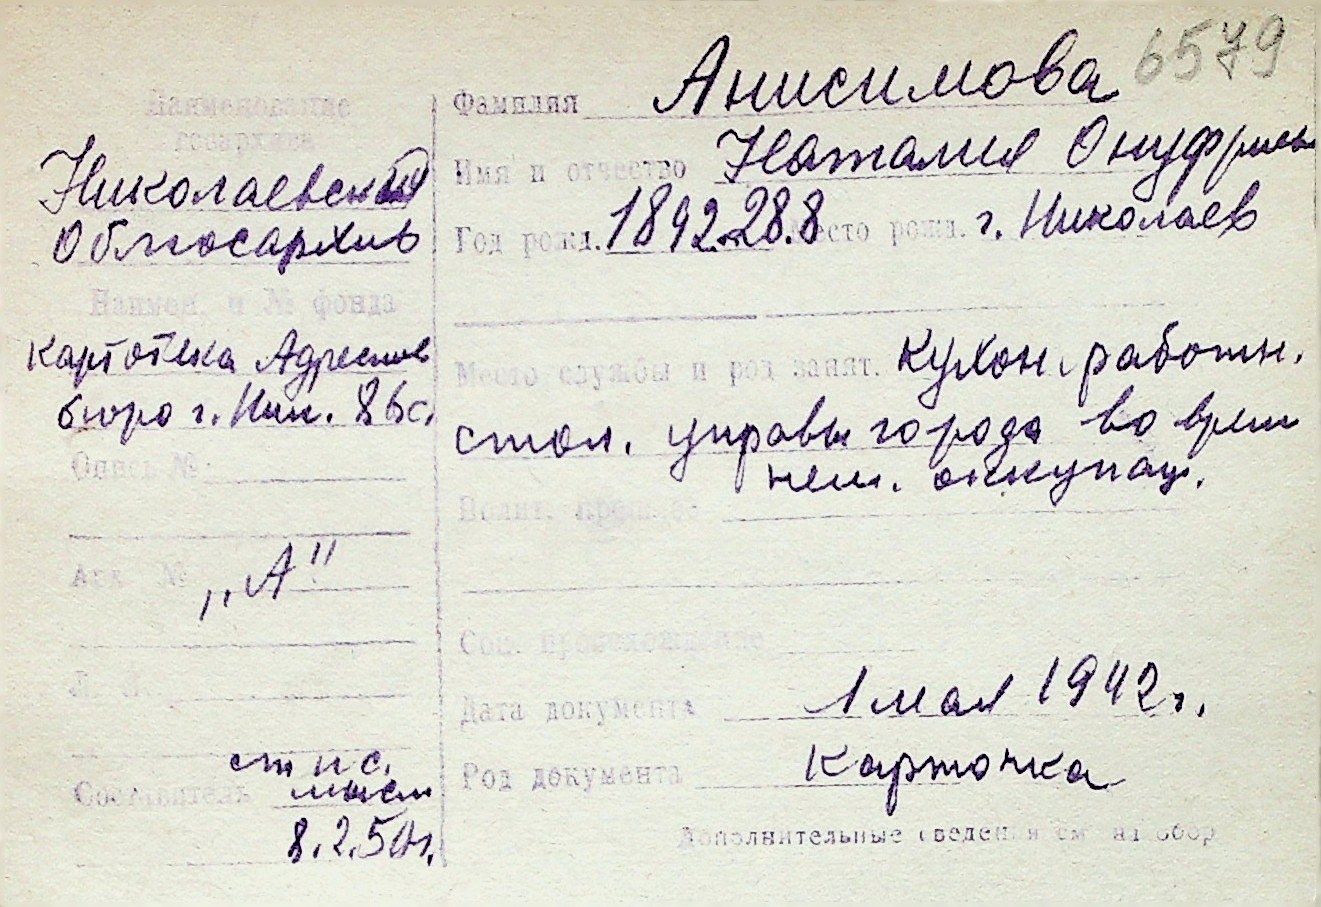 6579
Наименование
госархива
Николаевский
Облгосархив
Наимен. и № фонда
Картотека Адресное
бюро г. Ник.
Опись №
Арх. №
„А"
Л. Л.
Составитель
8.2.50г.
Фамилия Анисимова
Имя и отчество Наталия Онуфриев
Год рожд. 1892.28.8 Место рожд. г. Николаев
Место службы и род занят. кухон. работн.
стол. управы города во врем
нем. оккупац.
Полит. прошлое
Соц. происхождение
Дата документа 1 мая 1942 г.
Род документа Карточка
Дополнительные сведения см на обор